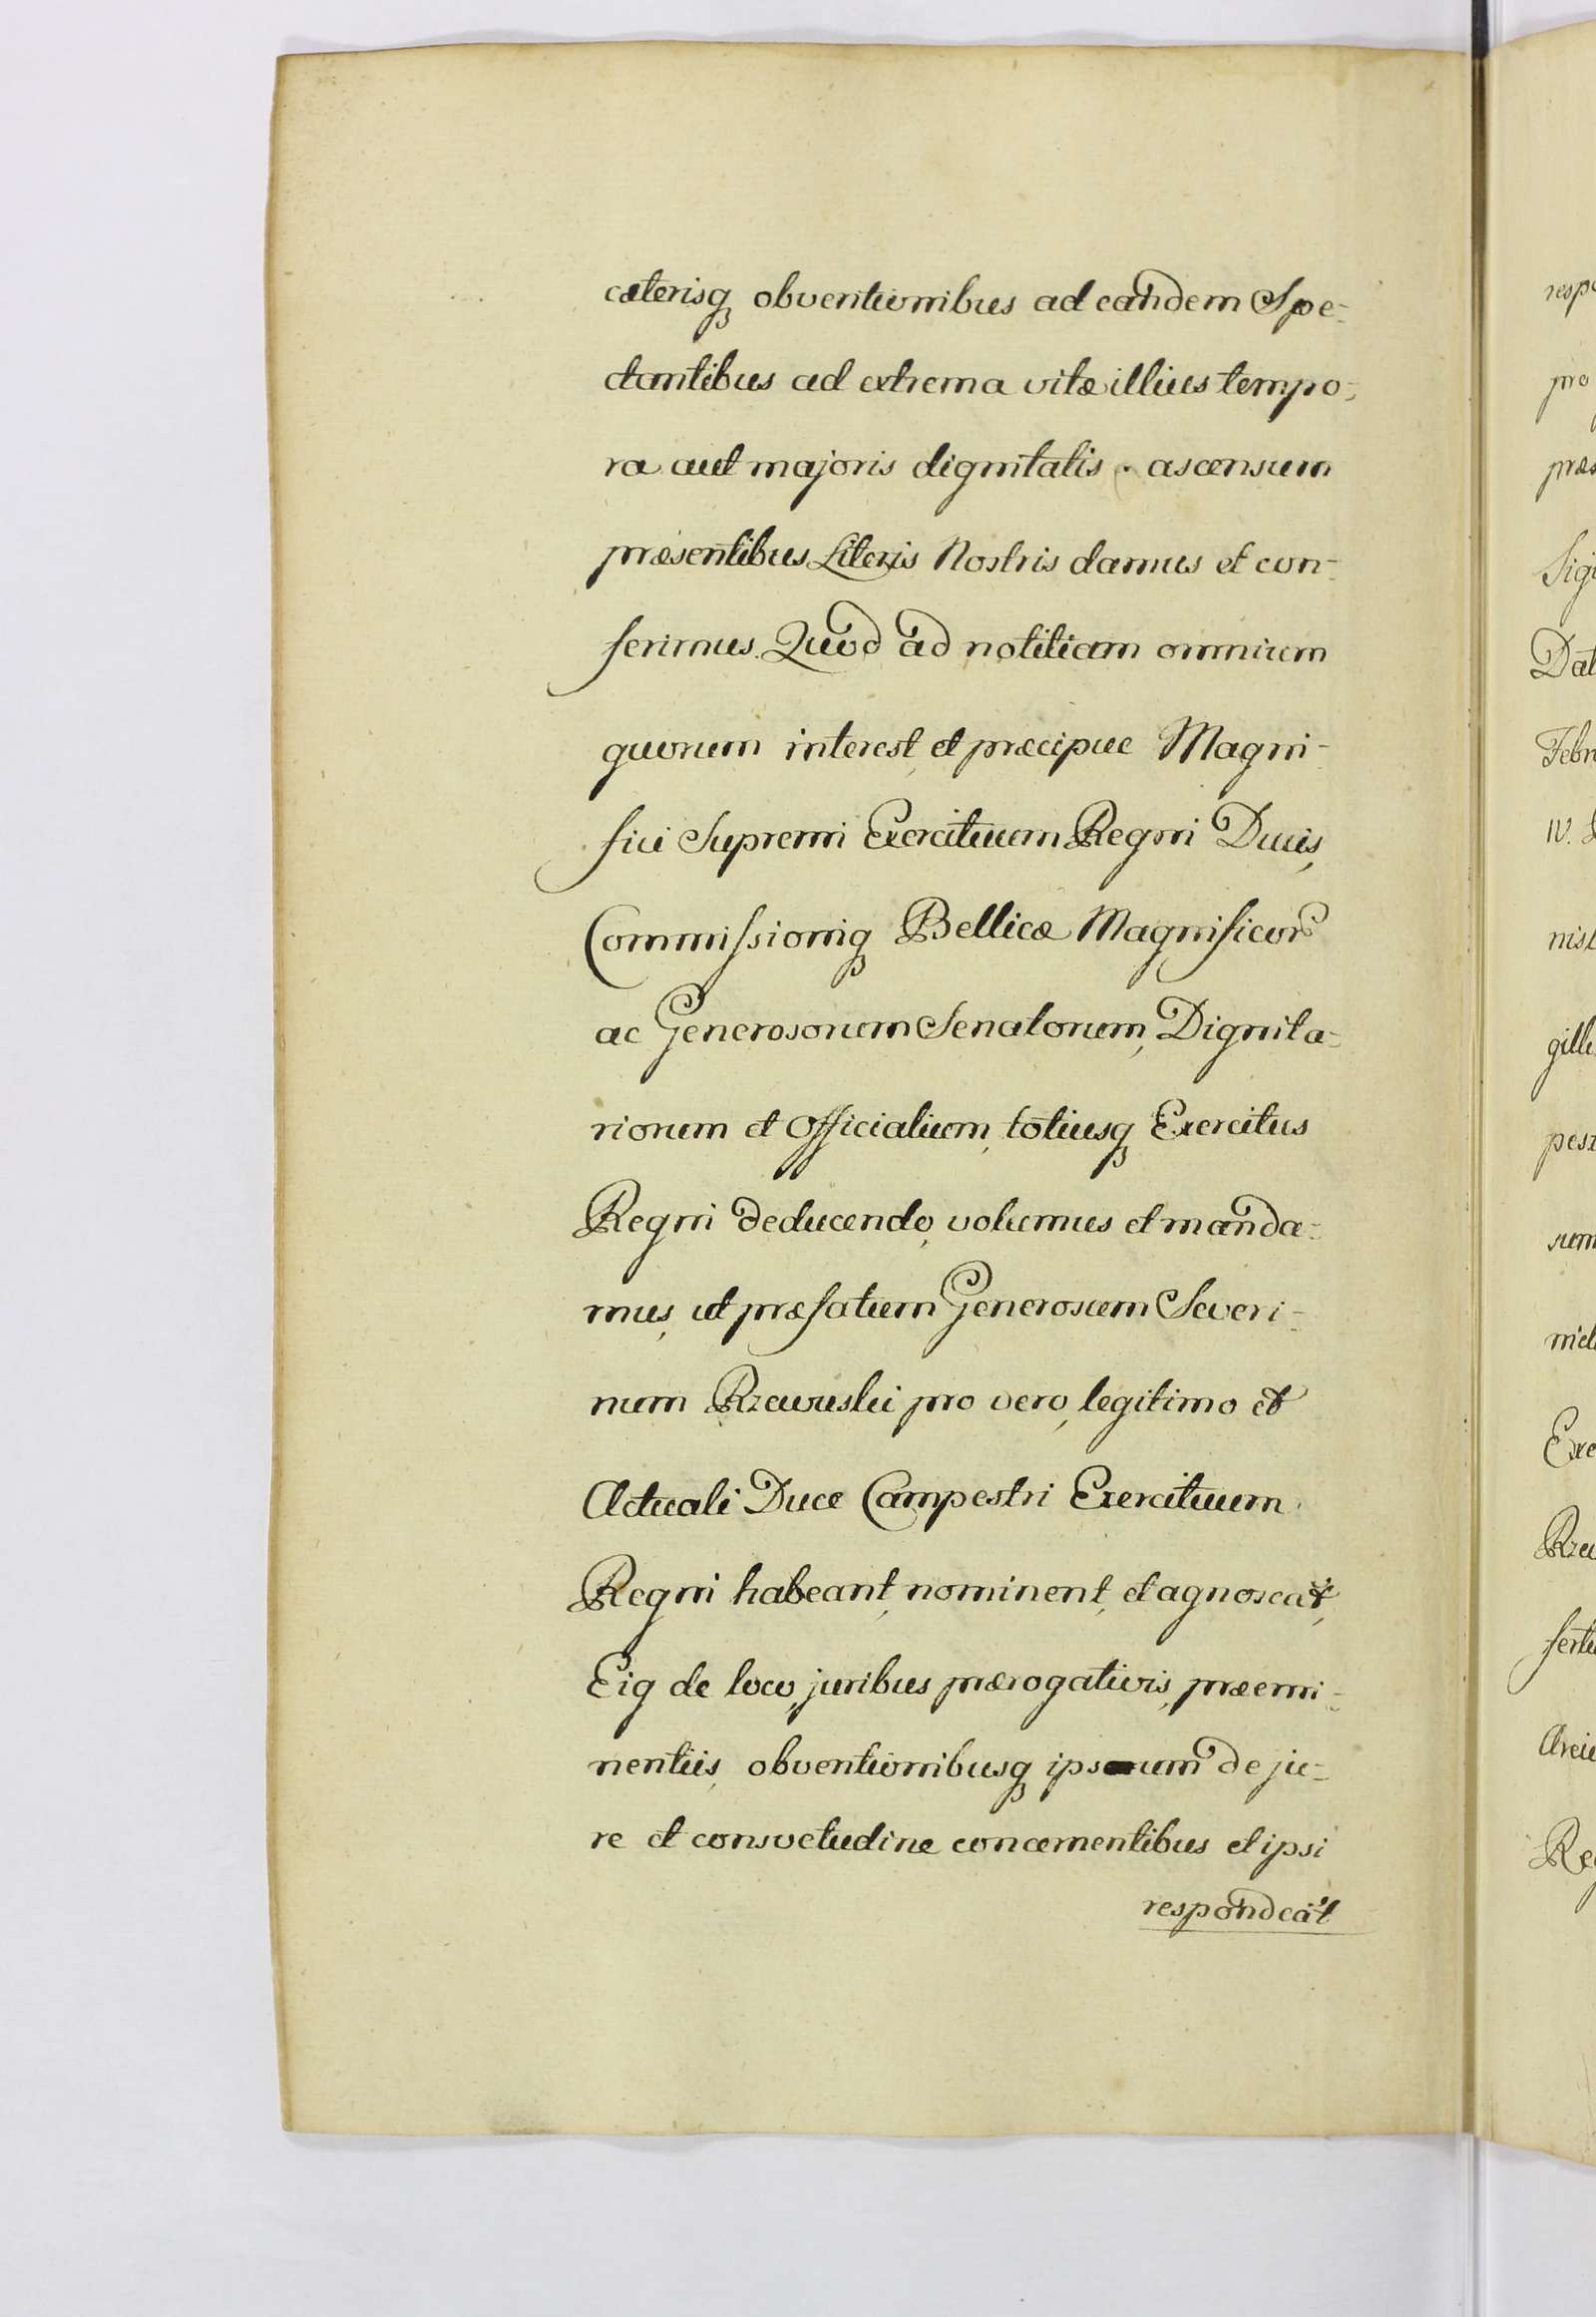 cæterisq obventionibus ad eandem Spe-
ctantibus ad extrema vitæ illius tempo-
ra aut majoris dignitatis ascensum
præsentibus Literis Nostris damus et con-
ferimus. Quod ad notitiam omnium
quorum interest, et præcipue Magni-
fici Supremi Exercituum Regni Ducis,
Commissioniq Bellicæ Magnificor
ac Generosorum Senatorum, Dignita-
riorum et Officialium, totiusq Exercitus
Regni deducendo, volumus et manda-
mus, ut præfatum Generosum Severi-
num Rzewuski pro vero, legitimo et
Actuali Duce Campestri Exercituum
Regni habeant, nominent, et agnoscat,
Eiq de loco, juribus prærogativis, præemi-
nentiis, obventionibusq ipsum de ju-
re et consvetudine concernentibus et ipsi
respondeat
respo
pro
præs
Sigi
Dat
Febr
IV.
nist
gill
pest
sum
niel
Exe
Rze
Re